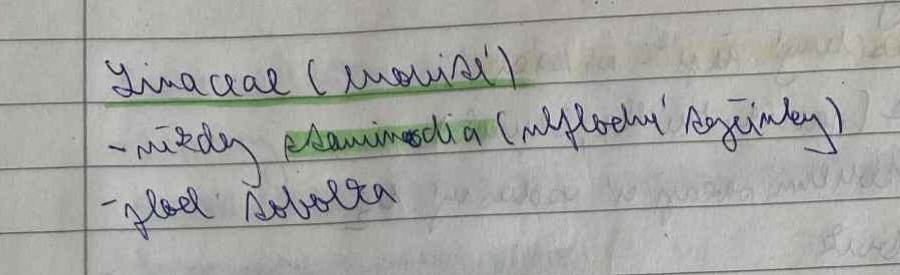 Linaceae (lnovité)
- někdy staminodia (neplodné tyčinky)
- plod tobolka